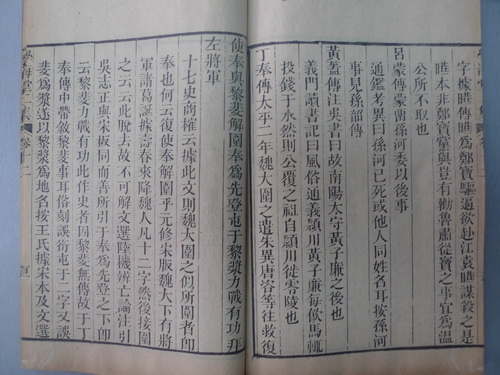 字據曄傳曄爲鄭寶驅逼欲赴江表曄謀殺之是
曄本非鄭寶黨與豈有勸魯肅從寶之事宜爲溫
公所不取也
呂蒙傳蒙薦孫河委以後事
通鑑考異曰孫河已死或他人同姓名耳按孫河
事見孫韶傳
黃蓋傳注吳書曰故南陽太守黃子廉之後也
義門讀書記曰風俗通義潁川黃子廉每飲馬輒
投錢于水然則公覆之祖自潁川徙零陵也
丁奉傳太平二年魏大圍之遣朱異唐咨等往救復
使奉與黎斐解圍奉爲先登屯于黎漿力戰有功拜
左將軍
十七史商榷云據此文則魏大圍之似所圍者即
奉也何云復使奉解圍乎元修宋版魏大下有將
軍諸葛誕據壽春來降魏人凡十二字然後接圍
之云云此脫去故不可解文選陸機辨亡論注引
吳志正與宋板同而善所引于奉爲先登之下即
云黎斐力戰有功此作史者因黎斐無傳故于丁
奉傳中帶敘黎斐事耳俗刻誤衍屯于二字又誤
斐爲漿遂以黎漿爲地名按王氏據宋本及文選
學海堂二集 卷十二